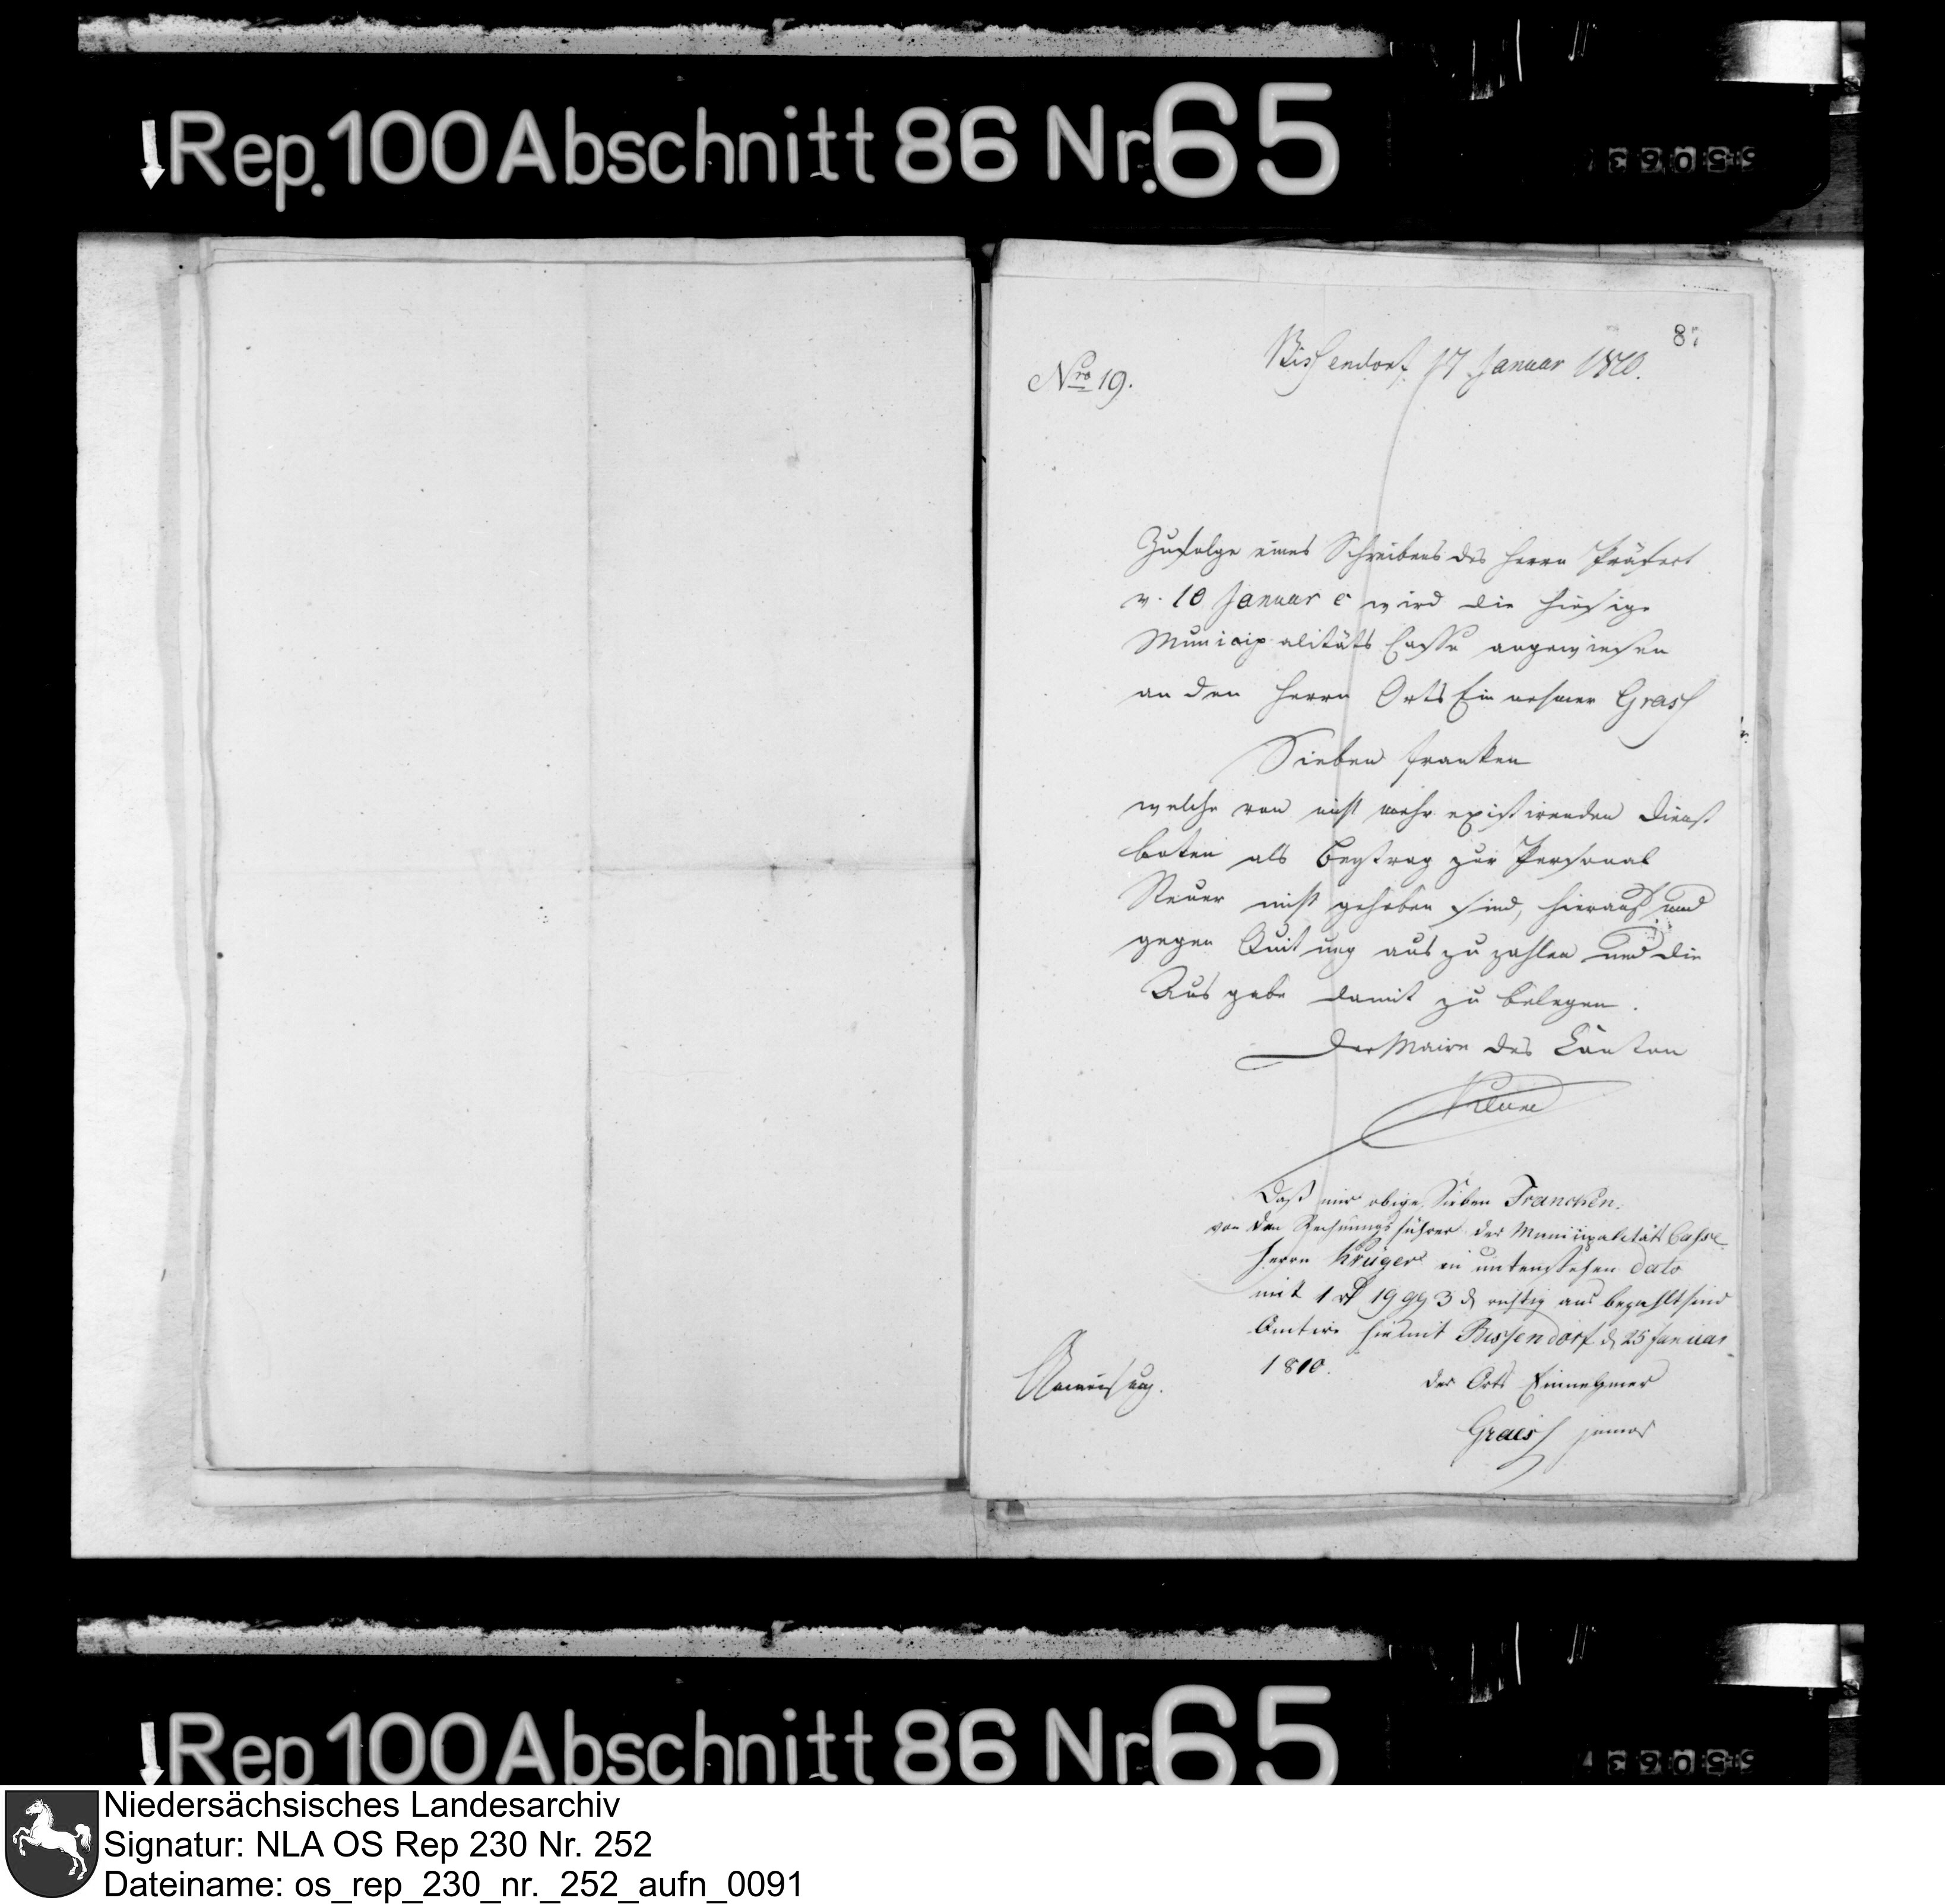 Rep. 100 Abschnitt 86 Nr. 65
8
Nro 19.
Bissendorf 17 Januar 1810.
Zufolge eines Schreibens des Herrn Präfect
v. 10 Januar c wird die hiesige
Municipalitäts Casse angewiesen
an den Herrn Orts Einnehmer Grass
Sieben Franken
welche von nicht mehr existirenden Dienst
boten als Beytrag zur Personal
Steuer nicht gehoben sind, hierauf und
gegen Quitung auszuzahlen und die
Ausgabe damit zu belegen.
Der Maire des Canton
Daß mir obige Sieben Francken
von den Rechnungsführer der Municipalität Casse
Herrn Krüger in untenstehen dato
mit 1 rt 19 gg 3 d richtig aus bezahlt sind
hiemit Bissendorf d 25 Januar
1810.
der Orts Einnehmer
Graess junior
Anweisung.
Rep. 100 Abschnitt 86 Nr. 65
Niedersächsisches Landesarchiv
Signatur: NLA OS Rep 230 Nr. 252
Dateiname: os_rep_230_nr._252_aufn_0091